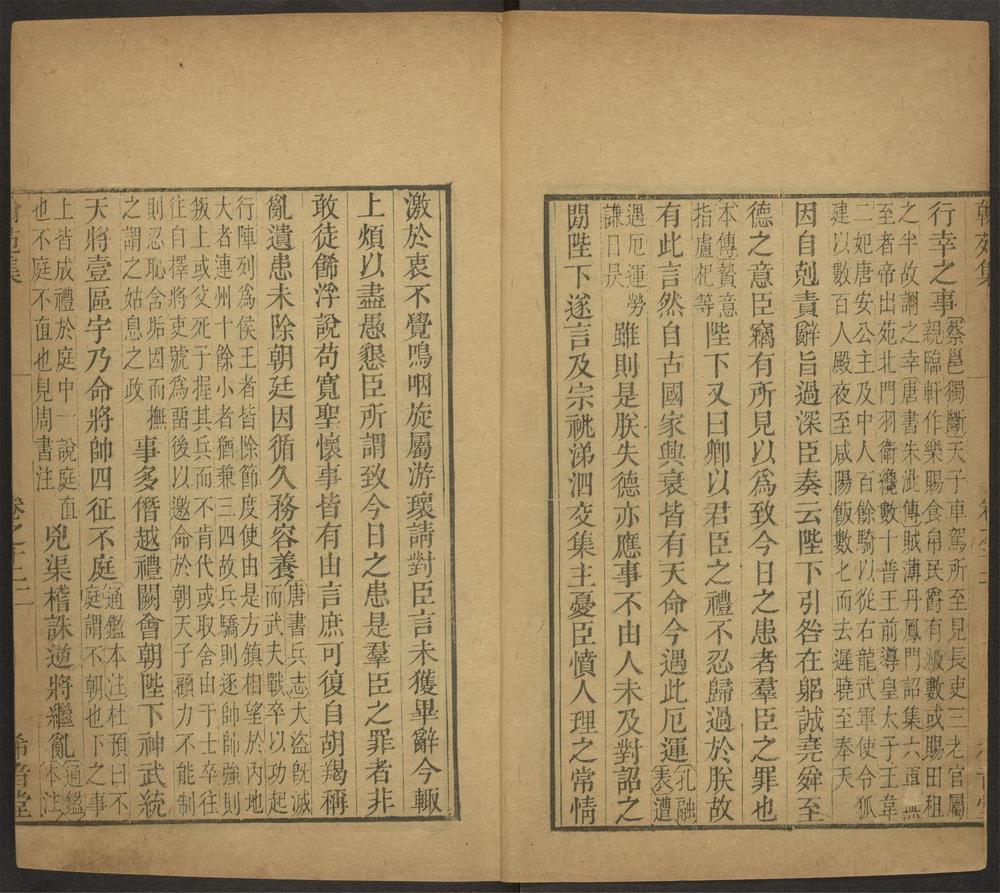 翰苑集
行幸之事蔡邕獨斷天子車駕所至見長吏三老官屬
親臨軒作樂賜食帛民爵有級數或賜田租
之半故謂之幸唐書朱泚傳賊薄丹鳳門詔集六軍無
至者帝出苑北門羽衛纔數十普王前導皇太子王韋
二妃唐安公主及中人百餘騎以從右龍武軍使令狐
建以數百人殿夜至咸陽飯數匕而去遲曉至奉天
因自剋責辭旨過深臣奏云陛下引咎在躬誠堯舜至
德之意臣竊有所見以爲致今日之患者羣臣之罪也
本傳贄意
指盧杞等陛下又曰卿以君臣之禮不忍歸過於朕故
有此言然自古國家興衰皆有天命今遇此厄運孔融
表遭
遇厄運勞
謙日昃雖則是朕失德亦應事不由人未及對詔之
閒陛下遂言及宗祧涕泗交集主憂臣憤人理之常情
激於衷不覺嗚咽旋屬游瓌請對臣言未獲畢辭今輙
上煩以盡愚懇臣所謂致今日之患是羣臣之罪者非
敢徒餙浮說苟寬聖懷事皆有由言庶可復自胡羯稱
亂遺患未除朝廷因循久務容養唐書兵志大盜旣滅
而武夫戰卒以功起
行陣列爲侯王者皆除節度使由是方鎮相望於內地
大者連州十餘小者猶兼三四故兵驕則逐帥帥強則
叛上或父死子握其兵而不肯代或取舍由于士卒往
往自擇將吏號爲畱後以邀命於朝天子顧力不能制
則忍恥含垢因而撫
之謂之姑息之政事多僭越禮闕會朝陛下神武統
天將壹區宇乃命將帥四征不庭通鑑本注杜預曰不
庭謂不朝也下之事
上皆成禮於庭中一說庭直
也不庭不直也見周書注兇渠稽誅逆將繼亂通鑑
本注
翰苑集
卷之十二
希音堂